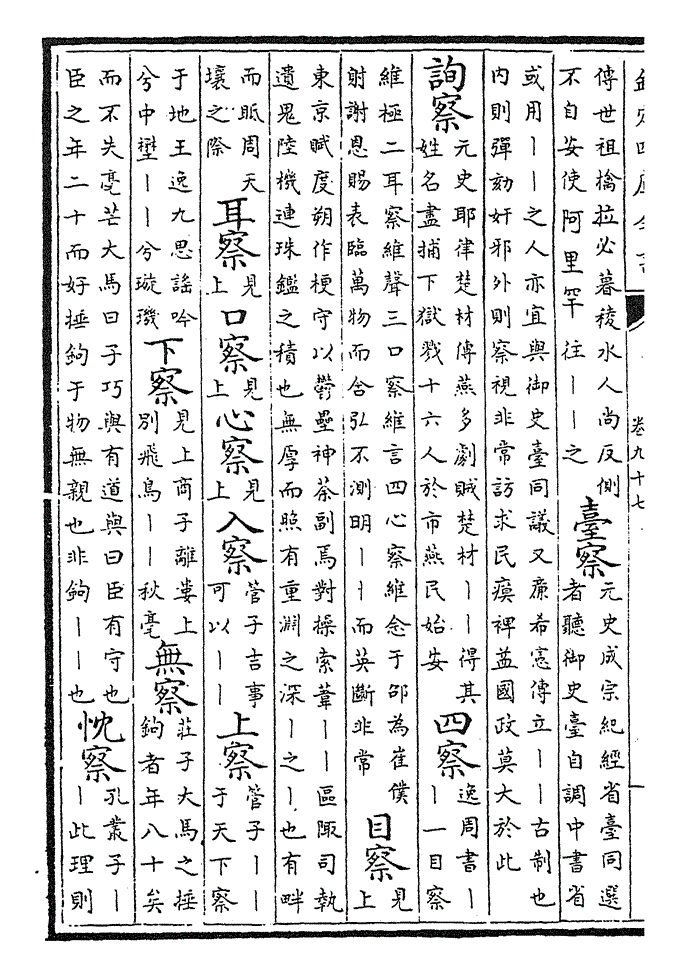 欽定四庫全書
卷九十七
傳世祖擒拉必暮稜水人尚反側
不自安使阿里罕往丨丨之
臺察
元史成宗紀經省臺同選
者聽御史臺自調中書省
或用丨丨之人亦宜與御史臺同議又廉希憲傳立丨丨古制也
內則彈劾奸邪外則察視非常訪求民瘼裨益國政莫大於此
詢察
元史耶律楚材傳燕多劇賊楚材丨丨得其
姓名盡捕下獄戮十六人於市燕民始安
四察
逸周書丨
丨一目察
維極二耳察維聲三口察維言四心察維念于邵為崔僕
射謝恩賜表臨萬物而含弘不測明丨丨而英斷非常
目察
見
上
東京賦度朔作梗守以鬱壘神荼副焉對操索葦丨丨區陬司執
遺鬼陸機連珠鑑之積也無厚而照有重淵之深丨之丨也有畔
而眡周天
壤之際
耳察
見
上
口察
見
上
心察
見
上
入察
管子吉事
可以丨丨
上察
管子丨丨
于天下察
于地王逸九思謠吟
兮中壄丨丨兮璇璣
下察
見上商子離婁上
別飛鳥丨丨秋毫
無察
莊子大馬之捶
鉤者年八十矣
而不失毫芒大馬曰子巧與有道與曰臣有守也
臣之年二十而好捶鉤于物無親也非鉤丨丨也
忱察
孔叢子丨
丨此理則